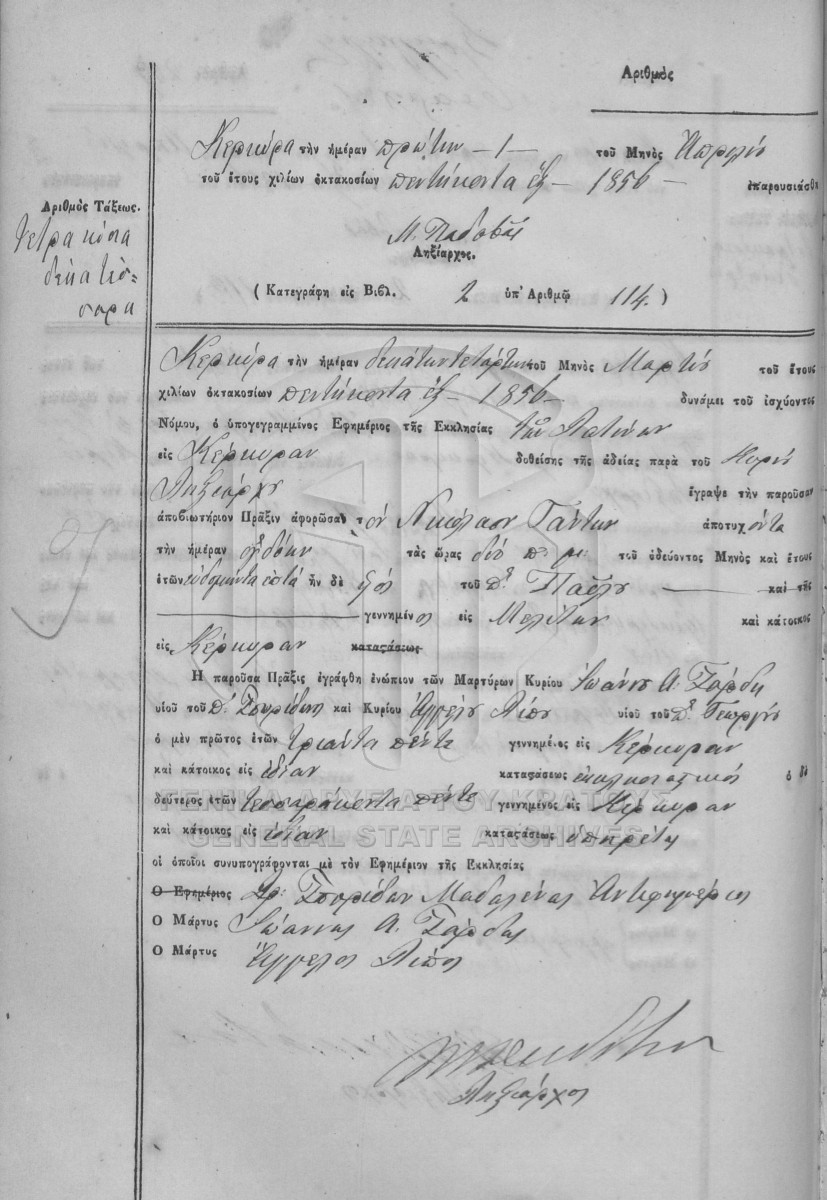 Ἀριθμὸς
Κερκύρα τὴν ἡμέραν πρώτην — 1 — τοῦ Μηνὸς Ἀπριλίου
τοῦ ἔτους χιλίων ὀκτακοσίων πεντήκοντα ἓξ — 1856 — ἐπαρουσιάσθη
Ἀριθμὸς Τάξεως.
τετρακόσια
δεκατέσ-
σαρα
Ληξίαρχος.
( Κατεγράφη εἰς Βιβλ. 2 ὑπ' Ἀριθμῷ 114. )
Κερκύρα τὴν ἡμέραν δεκάτην τετάρτην τοῦ Μηνὸς Μαρτίου τοῦ ἔτους
χιλίων ὀκτακοσίων πεντήκοντα ἓξ — 1856 — δυνάμει τοῦ ἰσχύοντος
Νόμου, ὁ ὑπογεγραμμένος Ἐφημέριος τῆς Ἐκκλησίας τῶν Λατίνων
εἰς Κέρκυραν δοθείσης τῆς ἀδείας παρὰ τοῦ Κυρίου
Ληξιάρχου ἔγραψε τὴν παροῦσαν
ἀποβιωτήριον Πρᾶξιν ἀφορῶσαν τὸν Νικόλαον ἀποτυχόντα
τὴν ἡμέραν ὀγδόην τὰς ὥρας δύο π. μ. τοῦ ὁδεύοντος Μηνὸς καὶ ἔτους
ἐτῶν ἑβδομήντα ἑπτά ἦν δὲ υἱὸς τοῦ Παύλου — καὶ τῆς
— γεννημένος εἰς Μελίταν καὶ κάτοικος
εἰς Κέρκυραν καταςάσεως
Ἡ παροῦσα Πρᾶξις ἐγράφθη ἐνώπιον τῶν Μαρτύρων Κυρίου Ἰωάννου Α.
υἱοῦ τοῦ καὶ Κυρίου Ἀγγέλου υἱοῦ τοῦ Γεωργίου
ὁ μὲν πρῶτος ἐτῶν τριάντα πέντε γεννημένος εἰς Κέρκυραν
καὶ κάτοικος εἰς ἰδίαν καταςάσεως ἐκκλησιαστικός ὁ δὲ
δεύτερος ἐτῶν τεσσαράκοντα πέντε γεννημένος εἰς Κέρκυραν
ΓΕΝΙΚΑ ΑΡΧΕΙΑ ΤΟΥ ΚΡΑΤΟΥΣ
GENERAL STATE ARCHIVES
καὶ κάτοικος εἰς ἰδίαν καταςάσεως ὑπηρέτης
οἱ ὁποῖοι συνυπογράφονται μὲ τὸν Ἐφημέριον τῆς Ἐκκλησίας
Ὁ Ἐφημέριος Σπυρίδων Ἀντεφημέριος
Ὁ Μάρτυς Ἰωάννης Α.
Ὁ Μάρτυς Ἄγγελος
Ληξίαρχος